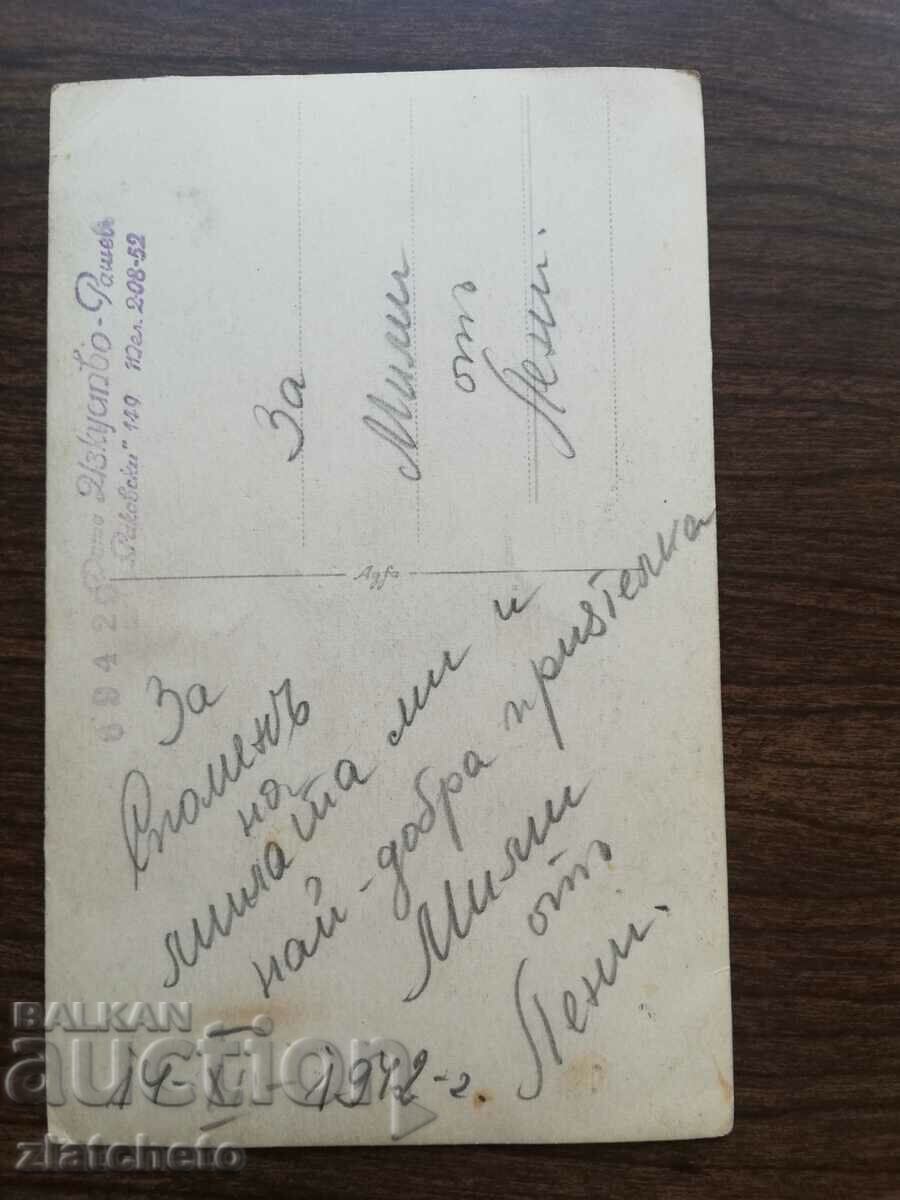 Фото Изкуство - Рашевъ
"Раковски" 149 Тел. 2-08-52
69426
За
Мими
отъ
Пени.
Agfa
За
Споменъ
на
милата ми и
най-добра приятелка
Мими
отъ
Пени.
14-XI-1942 г.
BALKAN
auction
zlatcheto